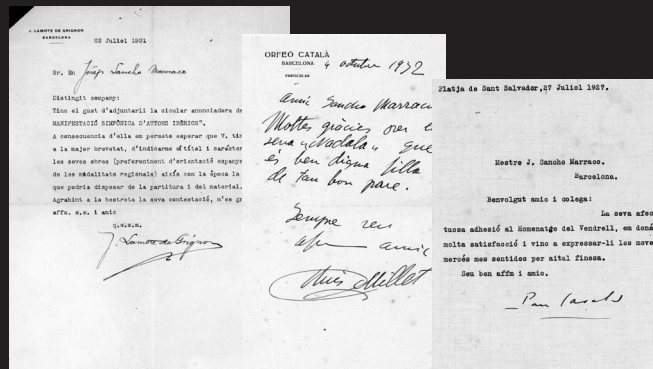 J. LAMOTE DE GRIGNON
BARCELONA
22 Juliol 1931
Sr. En Josep Sancho Marraco
Distingit company:
Tinc el gust d'adjuntarli la cicular anunciadera de
MANIFESTACIÓ SIMFÒNICA D'AUTORS IBÈRICS".
A consecuencia d'ella em permete esperar que V. tin
a la major brevetat, d'indicarme el títel i caràcter
les seves obres (preferentment d'orientació espanyo
de les modalitats regionals) aixís com la época
que podria disposar de la partitura i del material.
Agrahint a la bestreta la seva contestació, m'es gr
affm. s.s. i amic
q.e.s.m.
J. Lamote de Grignon
ORFEÓ CATALÀ
BARCELONA
PARTICULAR
4 octubre 1932
Amic Sancho Marraco
Moltes gràcies per l
seva "Nadala" que
és ben digna filla
de tan bon pare.
Sempre seu
afm amic
Lluís Millet
Platja de Sant Salvador, 27 Juliol 1927.
Mestre J. Sancho Marraco.
Barcelona.
Benvolgut amic i colega:
La seva afec
tuosa adhesió al Homenatge del Vendrell, em doná
molta satisfacció i vinc a expressar-li les meves
mercés mes sentides per aital finesa.
Seu ben affm i amic.
Pau Casals